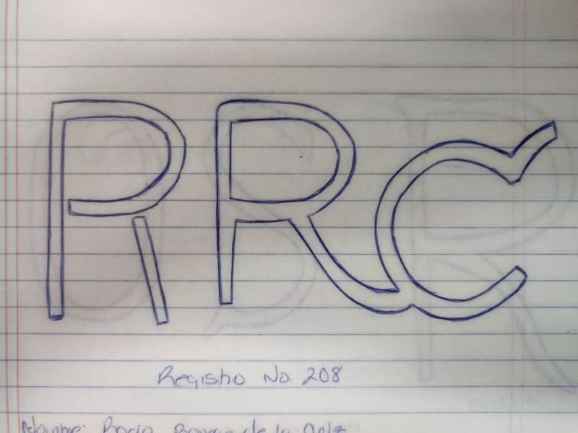 RRC
Registro No 208
Nombre: Rocio de la